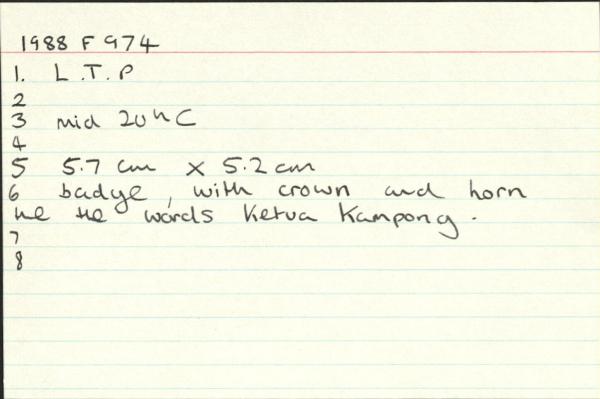 1988 F 974
1. L.T.P
2
3 mid 20th C
4
5 5.7 cm x 5.2 cm
6 badge, with crown and horn
the words Ketua Kampong.
7
8